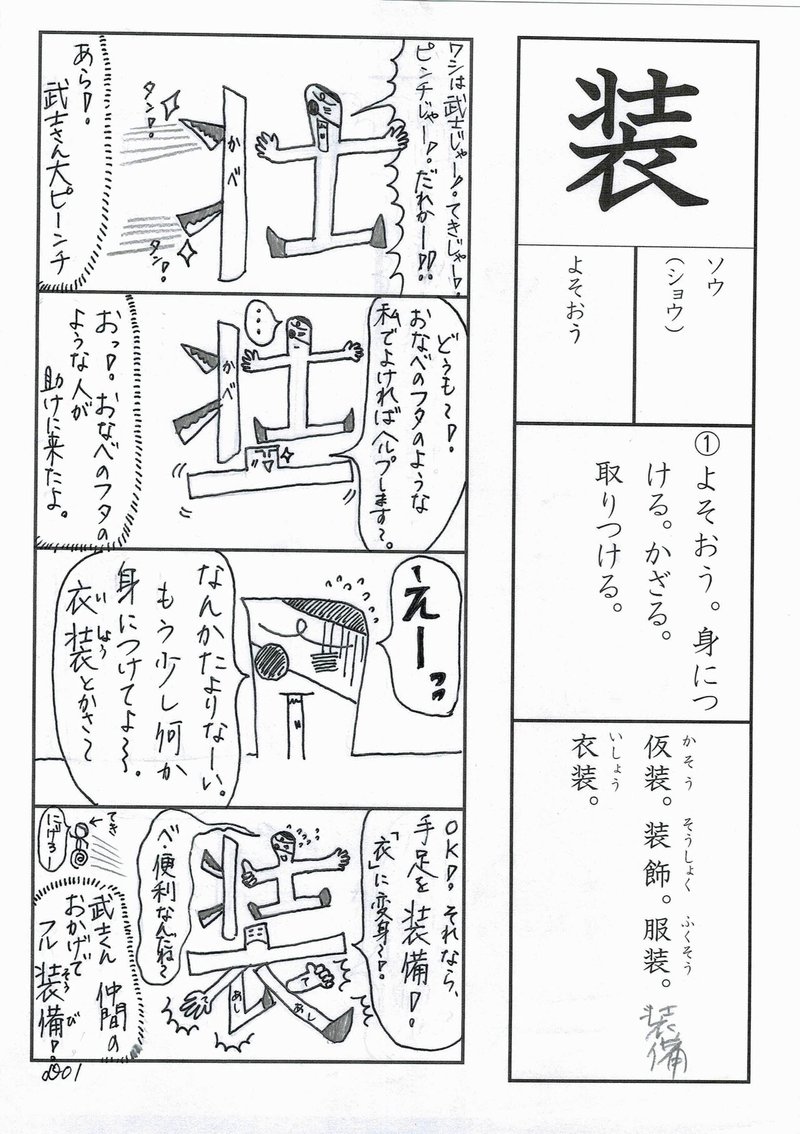 装
ソウ
（ショウ）
よそおう
①よそおう。身につ
ける。かざる。
取りつける。
かそう そうしょく ふくそう
仮装。装飾。服装。
装備
いしょう
衣装。
ワシは武士じゃー!。てきじゃー!。
ピンチじゃー!。だれかー!!!
かべ
タン!
タン!
あら!。
武士さん大ピーンチ
どぅも〜!。
おなべのフタのような
私でよければヘルプします〜。
…
かべ
おっ!。おなべのフタの
ような人が
助けに来たよ。
えーっ
なんかたよりなーい。
もう少し何か
身につけてよ〜。
いしょう
衣装とかさ〜
OK!。それなら、
手足を装備!。
「衣」に変身〜!。
べ・便利なんだね〜
て
て
あし
あし
てき
にげろー
武士くん 仲間の
おかげで
そうび
フル装備!。